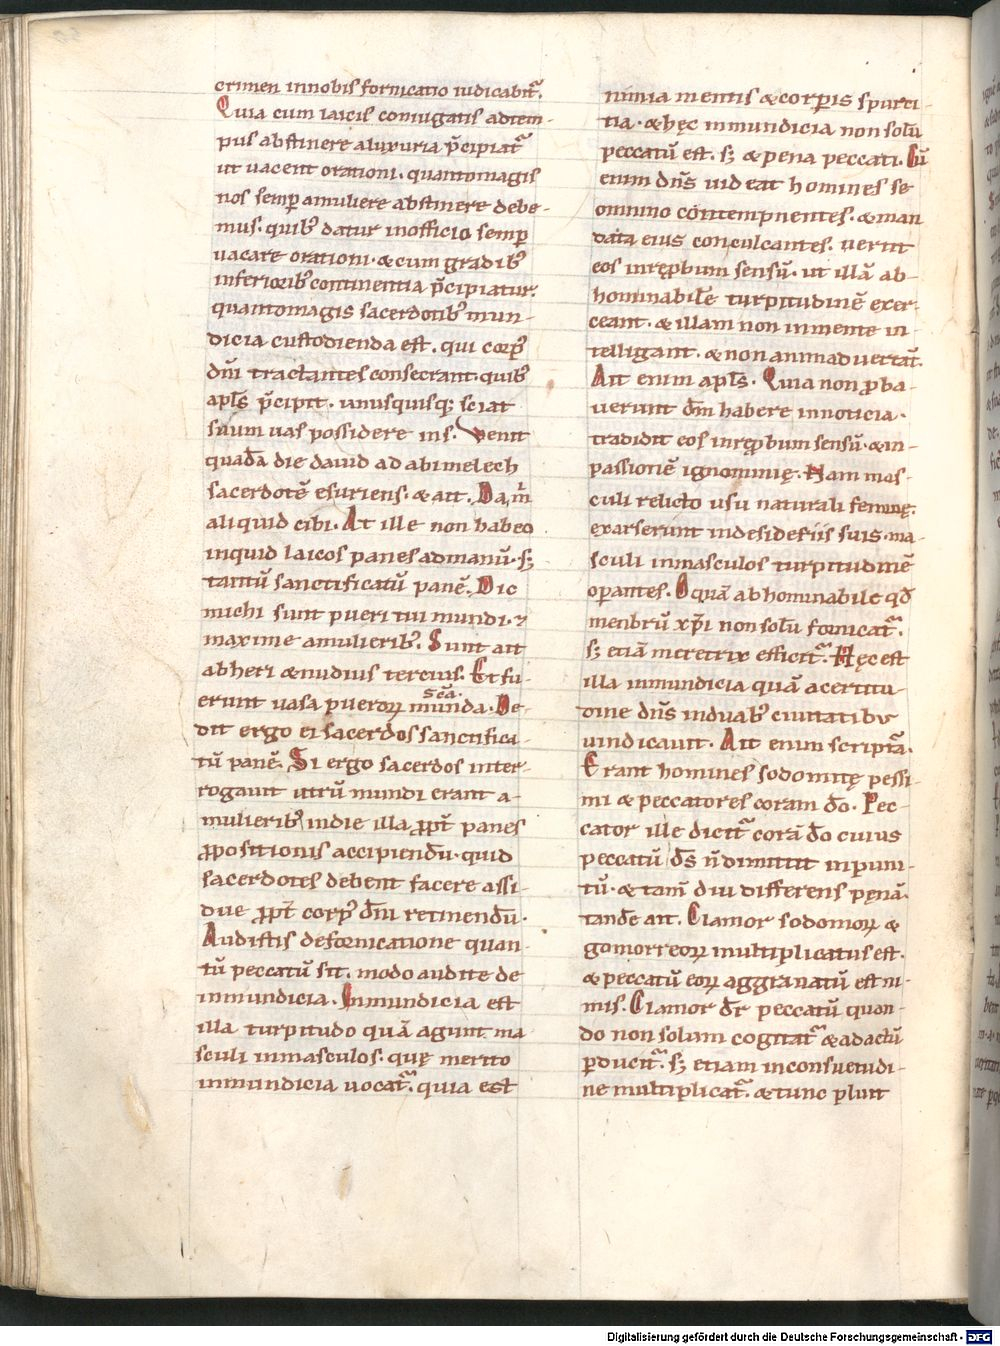 crimen in nobis fornicatio iudicabit᷑.
Quia cum laicis coniugatis ad tem-
pus abstinere a luxuria p̄cipiat᷑
ut uacent orationi. quanto magis
nos semp̱ a muliere abstinere debe-
mus. quib᷒ datur in officio semp̱
uacare orationi. & cum gradib᷒
inferiorib᷒ continentia p̄cipiatur.
quanto magis sacerdotib᷒ mun-
dicia custodienda est. qui corp᷒
dn̄i tractantes consecrant. quib᷒
apl̄s p̄cipit. unusquisq; sciat
suum uas possidere in s. Venit
quadā die dauid ad abimelech
sacerdotē esuriens. & ait. Da m̄
aliquid cibi. At ille non habeo
inquid laicos panes ad manū. s;
tantū sanctificatū panē. Dic
michi sunt pueri tui mundi. ⁊
maxime a mulierib᷒. Sunt ait
ab heri & nudius tercius. Et fu-
erunt uasa pueroꝝ munda. De-
sc̄a.
dit ergo ei sacerdos sanctifica-
tū panē. Si ergo sacerdos inter-
rogauit utrū mundi erant a
mulierib᷒ in die illa ꝓpt̄ panes
ꝓpositionis accipiendū. quid
sacerdotes debent facere assi-
due ꝓpt̄ corp᷒ dn̄i retinendū.
Audistis de fornicatione quan-
tū peccatū sit. modo audite de
inmundicia. Inmundicia est
illa turpitudo quā agunt ma-
sculi in masculos. quę merito
inmundicia uocat᷑. quia est
nimia mentis & corꝑis spurci-
tia. & hęc inmundicia non solū
peccatū est. s; & pena peccati. Cū
enim dn̄s uideat homines se
omnino contempnentes. & man-
data eius conculcantes. uertit
eos in rep̱bum sensū. ut illā ab-
hominabilē turpitudinē exer-
ceant. & illam non in mente in-
telligant. & non animaduertant.
Ait enim apl̄s. Quia non ꝓba-
uerunt dm̄ habere in noticia.
tradidit eos in rep̱bum sensū. & in
passionē ignominię. Nam mas-
culi relicto usu naturali feminę.
exarserunt in desideriis suis. ma-
sculi in masculos turpitudinē
oꝑantes. O quā abhominabile qd̄
menbrū xp̄i non solū fornicat᷑.
s; etiā meretrix efficit᷑. Hęc est
illa inmundicia quā acertitu-
dine dn̄s in duab᷒ ciuitatib᷒
uindicauit. Ait enim scriptura.
Erant homines sodomitę pessi-
mi & peccatores coram dō. Pec-
cator ille dicit᷑ corā dō cuius
peccatū ds̄ n̄ dimittit inpuni-
tū. & tam̄ diu differens pęnā
tandē ait. Clamor sodomoꝝ &
gomorreoꝝ multiplicatus est.
& peccatū eoꝝ aggrauatū est ni-
mis. Clamor dr̄ peccatū quan-
do non solum cogitat᷑ & ad actū
ꝑducit᷑. s; etiam in consuetudi-
ne multiplicat᷑. & tunc pluit
Digitalisierung gefördert durch die Deutsche Forschungsgemeinschaft - DFG